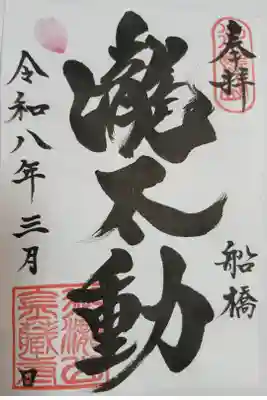 奉拝
船橋
瀧不動
令和八年三月
日